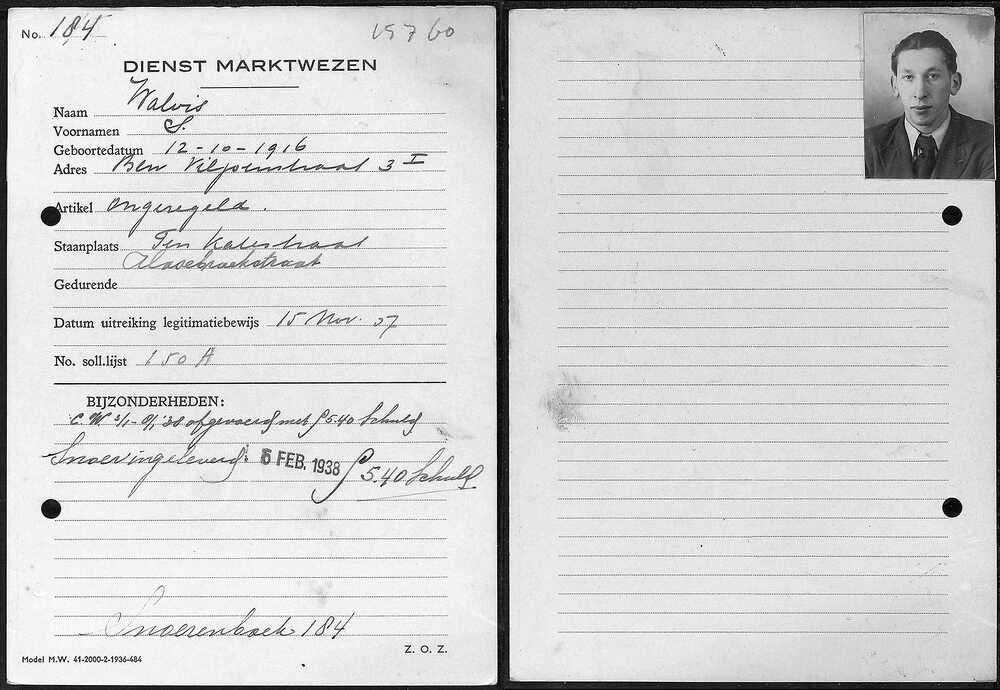 No. 184 15760
DIENST MARKTWEZEN
Naam Walvis
Voornamen S.
Geboortedatum 12-10-1916
Adres Ben Viljoenstraat 3 I
Artikel Ongeregeld.
Staanplaats Ten Katestraat
Hasebroekstraat
Gedurende
Datum uitreiking legitimatiebewijs 15 Nov. 37
No. soll.lijst 150 A
BIJZONDERHEDEN:
C.W. '38 afgevoerd met ƒ 5.40 Schuld
Snoer ingeleverd: 5 FEB. 1938 ƒ 5.40 Schuld
Snoerenboek 184
Model M.W. 41-2000-2-1936-484
Z. O. Z.